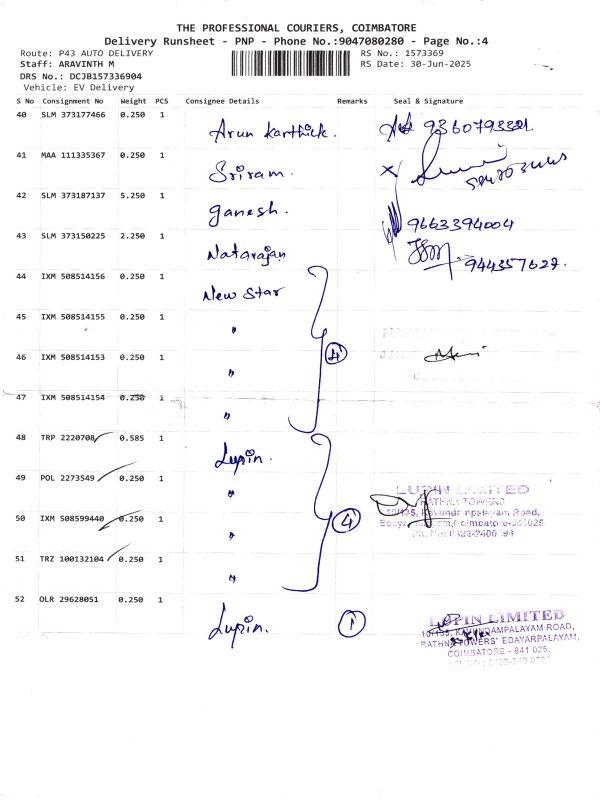 THE PROFESSIONAL COURIERS, COIMBATORE
Delivery Runsheet - PNP - Phone No.:9047080280 - Page No.:4
Route: P43 AUTO DELIVERY RS No.: 1573369
Staff: ARAVINTH M RS Date: 30-Jun-2025
DRS No.: DCJB157336904
Vehicle: EV Delivery
S No Consignment No Weight PCS Consignee Details Remarks Seal & Signature
40 SLM 373177466 0.250 1 Arun Karthick.
41 MAA 111335367 0.250 1 Sriram.
42 SLM 373187137 5.250 1 ganesh. 9663394004
43 SLM 373150225 2.250 1 Natarajan 944357627.
44 IXM 508514156 0.250 1 New Star
45 IXM 508514155 0.250 1 "
46 IXM 508514153 0.250 1 " 4
47 IXM 508514154 0.250 1 "
48 TRP 2220708 0.585 1 Lupin.
49 POL 2273549 0.250 1 " LUPIN LIMITED
50 IXM 508599440 0.250 1 " 4
51 TRZ 100132104 0.250 1 "
52 OLR 29628051 0.250 1 Lupin. 1 LUPIN LIMITED
10/135, KAVUNDAMPALAYAM ROAD,
"RATHNA TOWERS" EDAYARPALAYAM,
COIMBATORE - 641 025.